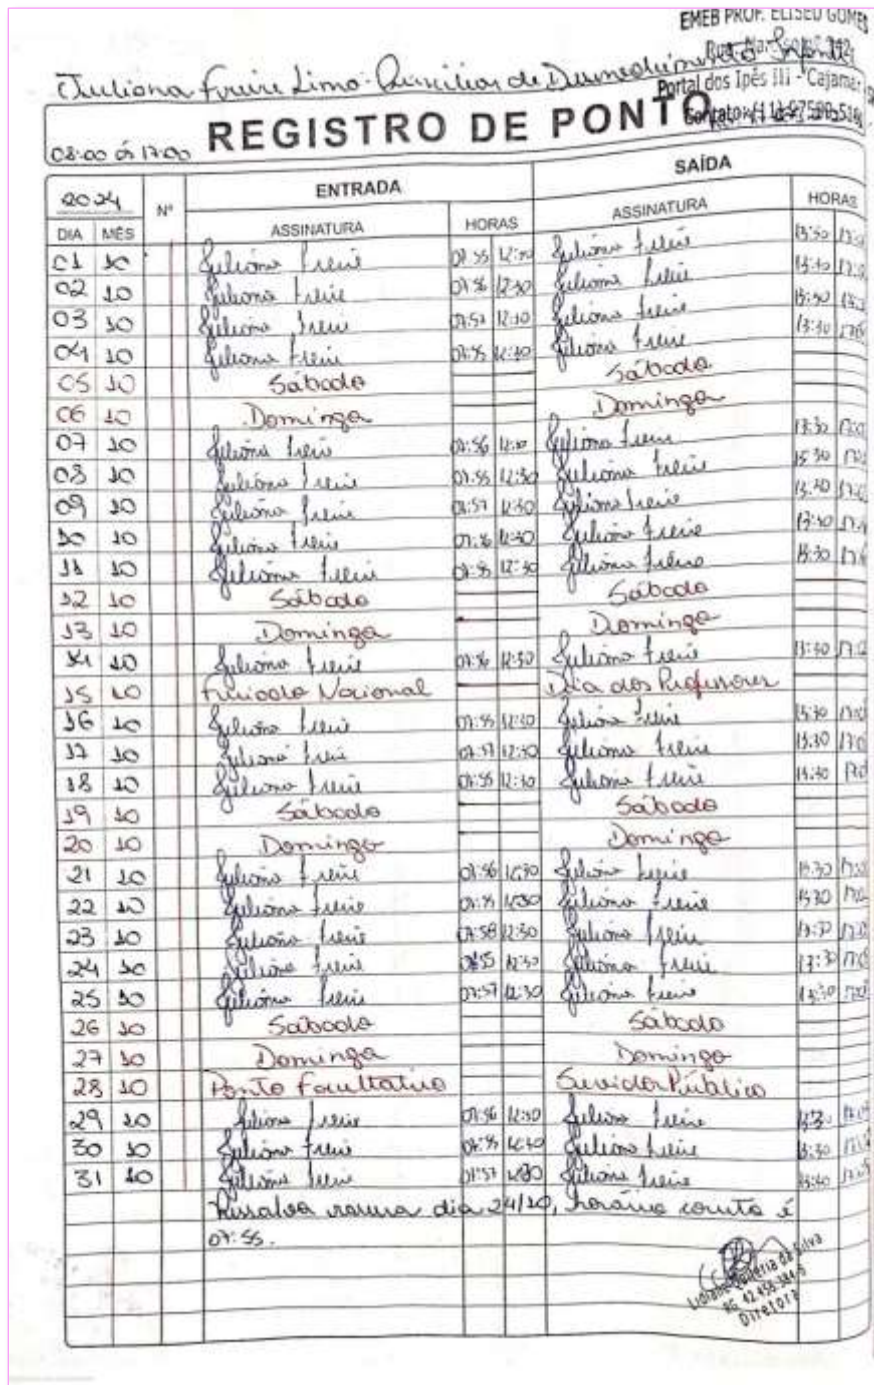 EMEB PROF. ELISEU GOMES
Juliana Freire Lima - Auxiliar de Desenvolvimento Infantil
Portal dos Ipês III - Cajamar
08:00 às 17:00 REGISTRO DE PONTO
2024 Nº ENTRADA SAÍDA
DIA MÊS ASSINATURA HORAS ASSINATURA HORAS
01 10 Juliana Freire 07:55 12:30 Juliana Freire 13:30
02 10 Juliana Freire 07:56 12:30 Juliana Freire 13:30
03 10 Juliana Freire 07:57 12:30 Juliana Freire 13:30
04 10 Juliana Freire 07:55 12:30 Juliana Freire 13:30
05 10 Sábado Sábado
06 10 Domingo Domingo
07 10 Juliana Freire 07:56 12:30 Juliana Freire 13:30
08 10 Juliana Freire 07:55 12:30 Juliana Freire 13:30
09 10 Juliana Freire 07:57 12:30 Juliana Freire 13:30
10 10 Juliana Freire 07:56 12:30 Juliana Freire 13:30
11 10 Juliana Freire 07:55 12:30 Juliana Freire 13:30
12 10 Sábado Sábado
13 10 Domingo Domingo
14 10 Juliana Freire 07:56 12:30 Juliana Freire 13:30
15 10 Feriado Nacional Dia dos Professores
16 10 Juliana Freire 07:55 12:30 Juliana Freire 13:30
17 10 Juliana Freire 07:57 12:30 Juliana Freire 13:30
18 10 Juliana Freire 07:55 12:30 Juliana Freire 13:30
19 10 Sábado Sábado
20 10 Domingo Domingo
21 10 Juliana Freire 07:56 12:30 Juliana Freire 13:30
22 10 Juliana Freire 07:55 12:30 Juliana Freire 13:30
23 10 Juliana Freire 07:58 12:30 Juliana Freire 13:30
24 10 Juliana Freire 07:55 12:30 Juliana Freire 13:30
25 10 Juliana Freire 07:57 12:30 Juliana Freire 13:30
26 10 Sábado Sábado
27 10 Domingo Domingo
28 10 Ponto Facultativo Servidor Público
29 10 Juliana Freire 07:56 12:30 Juliana Freire 13:30
30 10 Juliana Freire 07:55 12:30 Juliana Freire 13:30
31 10 Juliana Freire 07:57 12:30 Juliana Freire 13:30
Ressalva rasura dia 24/10, horário correto é
07:55.
da Silva
Diretora